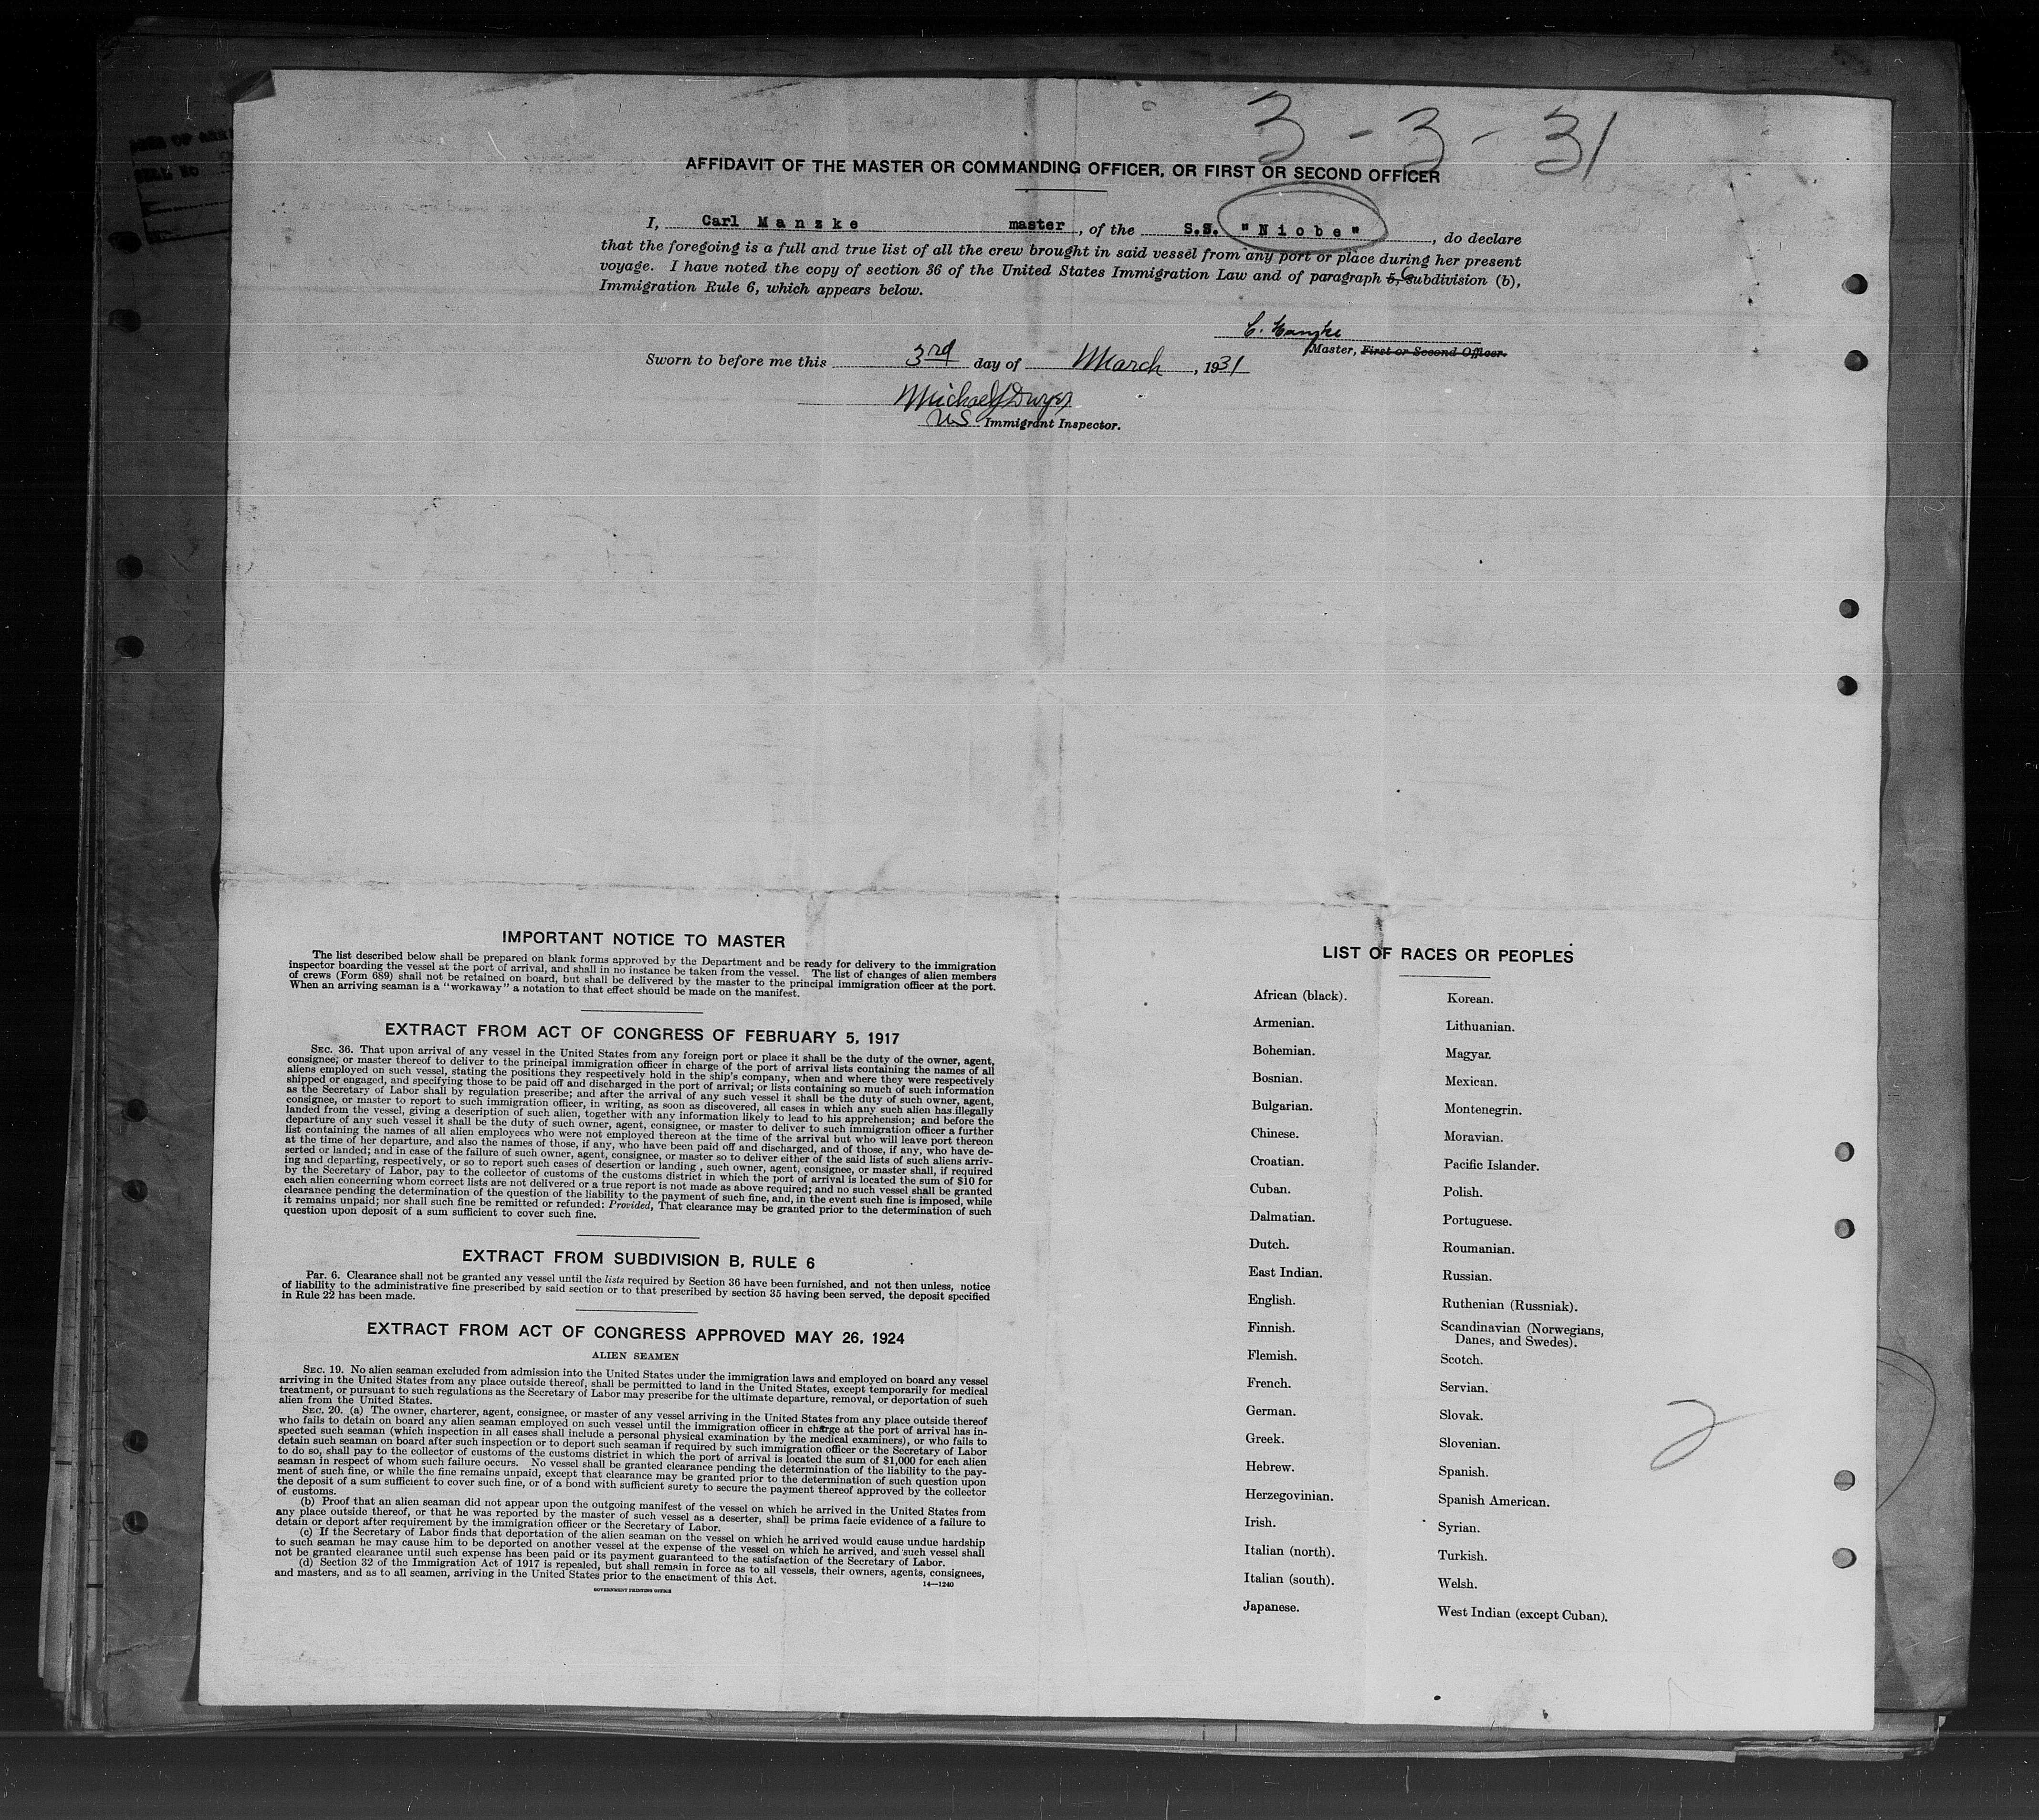 3 - 3 - 31
AFFIDAVIT OF THE MASTER OR COMMANDING OFFICER, OR FIRST OR SECOND OFFICER
I, Carl Manzke master, of the S.S. "Niobe", do declare
that the foregoing is a full and true list of all the crew brought in said vessel from any port or place during her present
voyage. I have noted the copy of section 36 of the United States Immigration Law and of paragraph 5, 6 subdivision (b),
Immigration Rule 6, which appears below.
C. Manzke
Master, First or Second Officer.
Sworn to before me this 3rd day of March, 1931
Michael J Dwyer
US Immigrant Inspector.
IMPORTANT NOTICE TO MASTER
The list described below shall be prepared on blank forms approved by the Department and be ready for delivery to the immigration
inspector boarding the vessel at the port of arrival, and shall in no instance be taken from the vessel. The list of changes of alien members
of crews (Form 689) shall not be retained on board, but shall be delivered by the master to the principal immigration officer at the port.
When an arriving seaman is a "workaway" a notation to that effect should be made on the manifest.
EXTRACT FROM ACT OF CONGRESS OF FEBRUARY 5, 1917
SEC. 36. That upon arrival of any vessel in the United States from any foreign port or place it shall be the duty of the owner, agent,
consignee, or master thereof to deliver to the principal immigration officer in charge of the port of arrival lists containing the names of all
aliens employed on such vessel, stating the positions they respectively hold in the ship's company, when and where they were respectively
shipped or engaged, and specifying those to be paid off and discharged in the port of arrival; or lists containing so much of such information
as the Secretary of Labor shall by regulation prescribe; and after the arrival of any such vessel it shall be the duty of such owner, agent,
consignee, or master to report to such immigration officer, in writing, as soon as discovered, all cases in which any such alien has illegally
landed from the vessel, giving a description of such alien, together with any information likely to lead to his apprehension; and before the
departure of any such vessel it shall be the duty of such owner, agent, consignee, or master to deliver to such immigration officer a further
list containing the names of all alien employees who were not employed thereon at the time of the arrival but who will leave port thereon
at the time of her departure, and also the names of those, if any, who have been paid off and discharged, and of those, if any, who have de-
serted or landed; and in case of the failure of such owner, agent, consignee, or master so to deliver either of the said lists of such aliens arriv-
ing and departing, respectively, or so to report such cases of desertion or landing, such owner, agent, consignee, or master shall, if required
by the Secretary of Labor, pay to the collector of customs of the customs district in which the port of arrival is located the sum of $10 for
each alien concerning whom correct lists are not delivered or a true report is not made as above required; and no such vessel shall be granted
clearance pending the determination of the question of the liability to the payment of such fine, and, in the event such fine is imposed, while
it remains unpaid; nor shall such fine be remitted or refunded: Provided, That clearance may be granted prior to the determination of such
question upon deposit of a sum sufficient to cover such fine.
EXTRACT FROM SUBDIVISION B, RULE 6
Par. 6. Clearance shall not be granted any vessel until the lists required by Section 36 have been furnished, and not then unless, notice
of liability to the administrative fine prescribed by said section or to that prescribed by section 35 having been served, the deposit specified
in Rule 22 has been made.
EXTRACT FROM ACT OF CONGRESS APPROVED MAY 26, 1924
ALIEN SEAMEN
SEC. 19. No alien seaman excluded from admission into the United States under the immigration laws and employed on board any vessel
arriving in the United States from any place outside thereof, shall be permitted to land in the United States, except temporarily for medical
treatment, or pursuant to such regulations as the Secretary of Labor may prescribe for the ultimate departure, removal, or deportation of such
alien from the United States.
SEC. 20. (a) The owner, charterer, agent, consignee, or master of any vessel arriving in the United States from any place outside thereof
who fails to detain on board any alien seaman employed on such vessel until the immigration officer in charge at the port of arrival has in-
spected such seaman (which inspection in all cases shall include a personal physical examination by the medical examiners), or who fails to
detain such seaman on board after such inspection or to deport such seaman if required by such immigration officer or the Secretary of Labor
to do so, shall pay to the collector of customs of the customs district in which the port of arrival is located the sum of $1,000 for each alien
seaman in respect of whom such failure occurs. No vessel shall be granted clearance pending the determination of the liability to the pay-
ment of such fine, or while the fine remains unpaid, except that clearance may be granted prior to the determination of such question upon
the deposit of a sum sufficient to cover such fine, or of a bond with sufficient surety to secure the payment thereof approved by the collector
of customs.
(b) Proof that an alien seaman did not appear upon the outgoing manifest of the vessel on which he arrived in the United States from
any place outside thereof, or that he was reported by the master of such vessel as a deserter, shall be prima facie evidence of a failure to
detain or deport after requirement by the immigration officer or the Secretary of Labor.
(c) If the Secretary of Labor finds that deportation of the alien seaman on the vessel on which he arrived would cause undue hardship
to such seaman he may cause him to be deported on another vessel at the expense of the vessel on which he arrived, and such vessel shall
not be granted clearance until such expense has been paid or its payment guaranteed to the satisfaction of the Secretary of Labor.
(d) Section 32 of the Immigration Act of 1917 is repealed, but shall remain in force as to all vessels, their owners, agents, consignees,
and masters, and as to all seamen, arriving in the United States prior to the enactment of this Act.
14—1240
GOVERNMENT PRINTING OFFICE
LIST OF RACES OR PEOPLES
African (black).
Armenian.
Bohemian.
Bosnian.
Bulgarian.
Chinese.
Croatian.
Cuban.
Dalmatian.
Dutch.
East Indian.
English.
Finnish.
Flemish.
French.
German.
Greek.
Hebrew.
Herzegovinian.
Irish.
Italian (north).
Italian (south).
Japanese.
Korean.
Lithuanian.
Magyar.
Mexican.
Montenegrin.
Moravian.
Pacific Islander.
Polish.
Portuguese.
Roumanian.
Russian.
Ruthenian (Russniak).
Scandinavian (Norwegians,
Danes, and Swedes).
Scotch.
Servian.
Slovak.
Slovenian.
Spanish.
Spanish American.
Syrian.
Turkish.
Welsh.
West Indian (except Cuban).
2